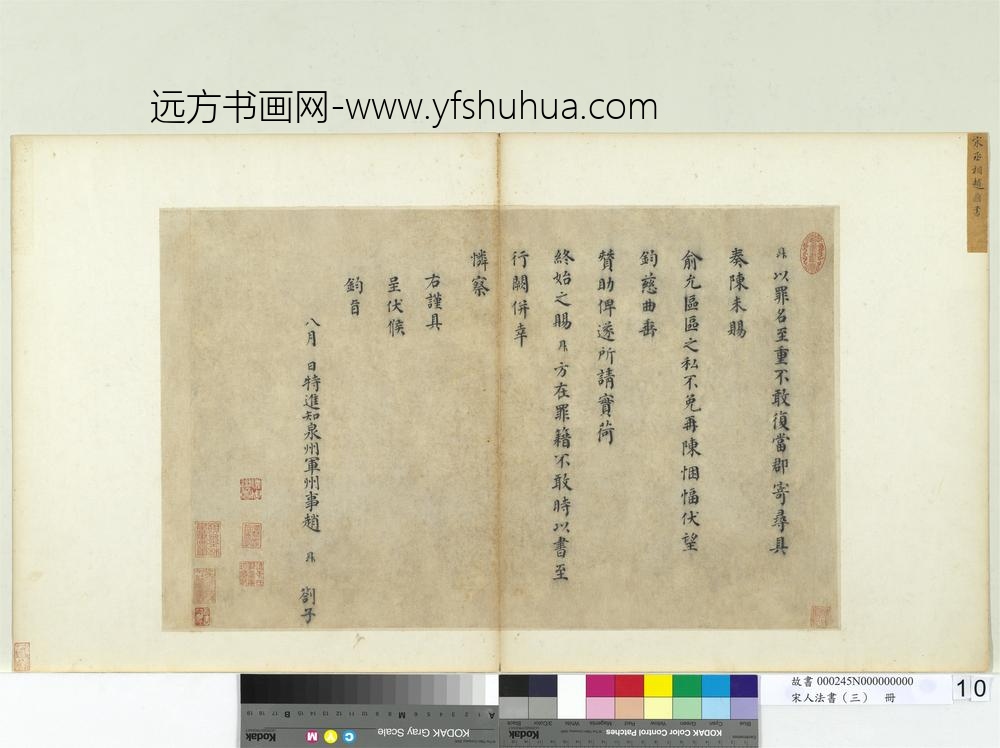 远方书画网-www.yfshuhua.com
宋丞相趙鼎書
鼎以罪名至重不敢復當郡寄尋具
奏陳未賜
俞允區區之私不免再陳悃愊伏望
鈞慈曲垂
贊助俾遂所請實荷
終始之賜鼎方在罪籍不敢時以書至
行闕併幸
憐察
右謹具
呈伏候
鈞旨
八月 日特進知泉州軍州事趙 鼎 劄子
故書 000245N000000000
宋人法書（三） 冊
10
KODAK Gray Scale
Kodak
C
Y
M
A
M
B
KODAK Color Control Patches
Kodak
Blue
Cyan
Green
Yellow
Red
Magenta
White
3/Color
Black